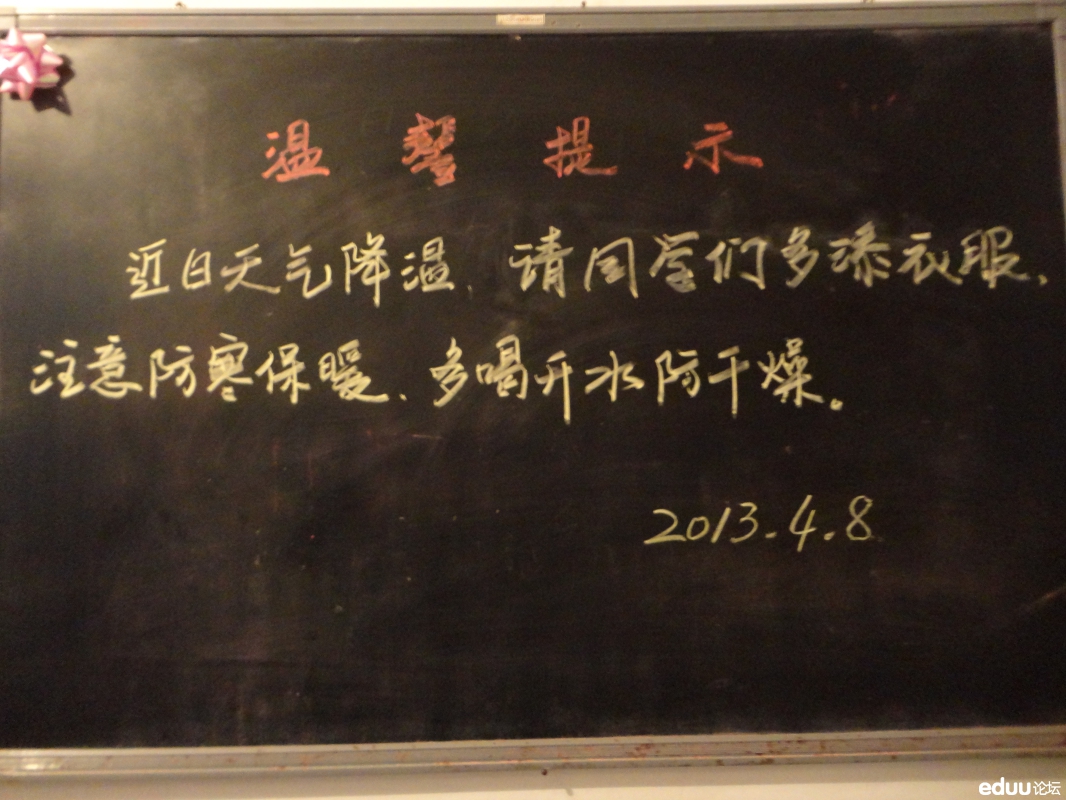 温馨提示
近日天气降温，请同学们多添衣服，
注意防寒保暖、多喝开水防干燥。
2013.4.8
eduu论坛